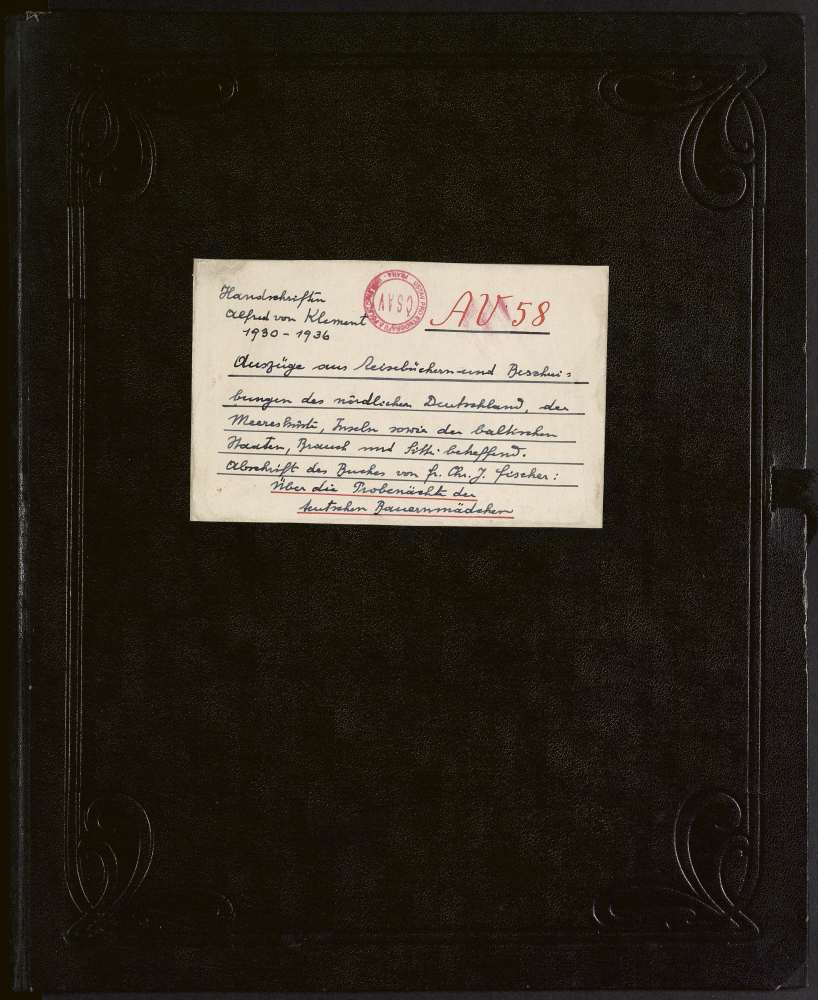 Handschriften
Alfred von Klement
1930-1936
ČSAV
PRAHA
AV 58
Auszüge aus Reisebüchern und Beschrei=
bungen des nördlichen Deutschland, der
Meeresküste, Inseln sowie der baltischen
Staaten, Brauch und Sitte betreffend.
Abschrift des Buches von Fr. Chr. J. Fischer:
Über die Probenächte der
teutschen Bauernmädchen